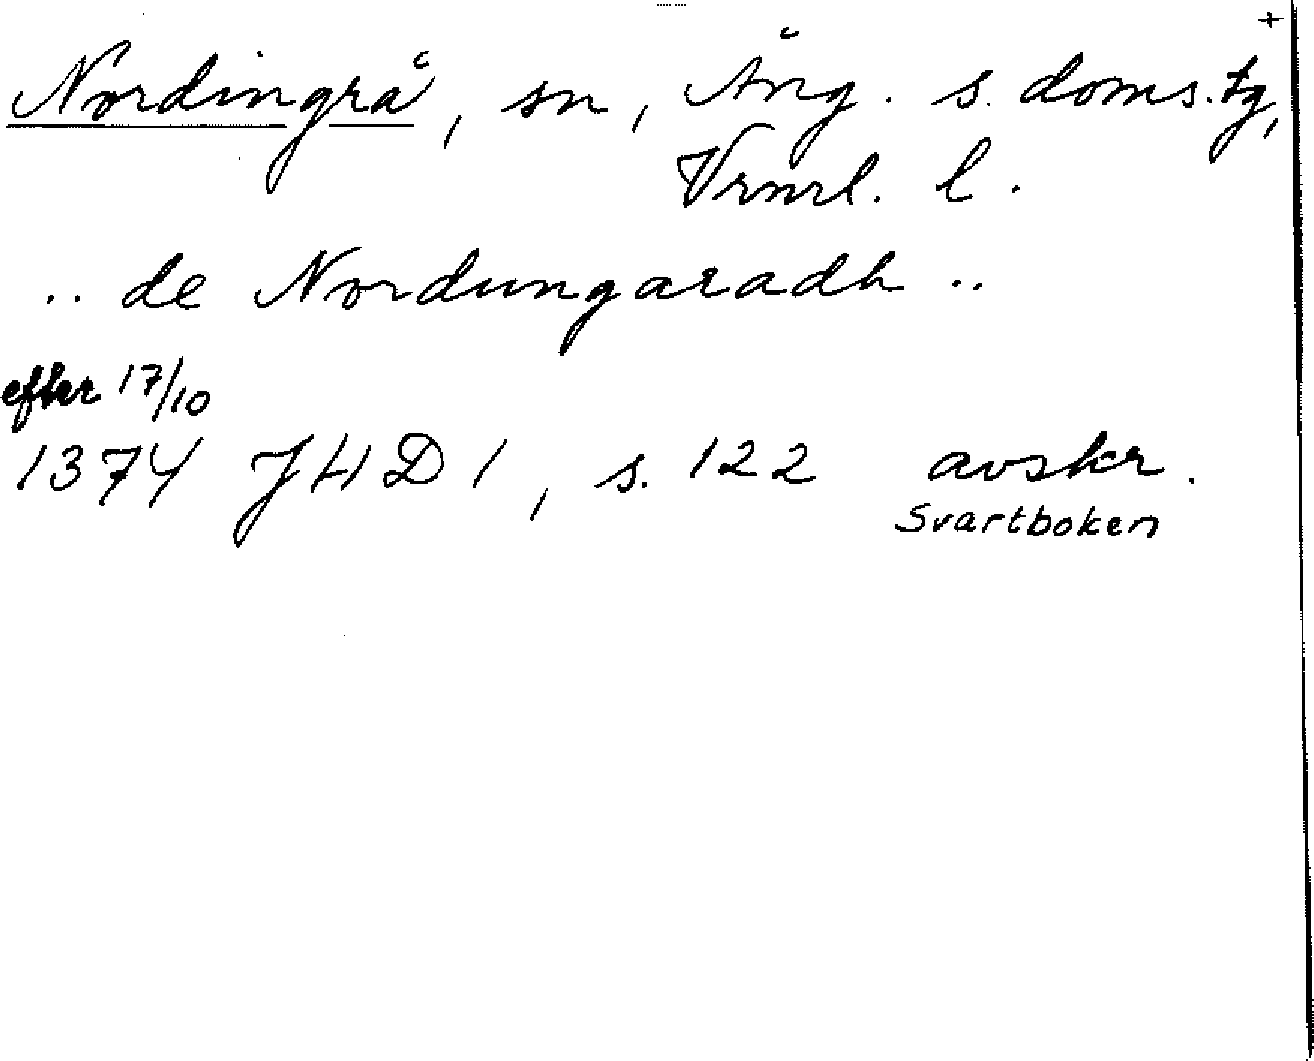 +
Nordingrå, sn, Ång. s. doms.tg,
Vrnrl. l.
.. de Nordungaradh ..
efter 17/10
1374 JHD 1, s. 122 avskr.
Svartboken